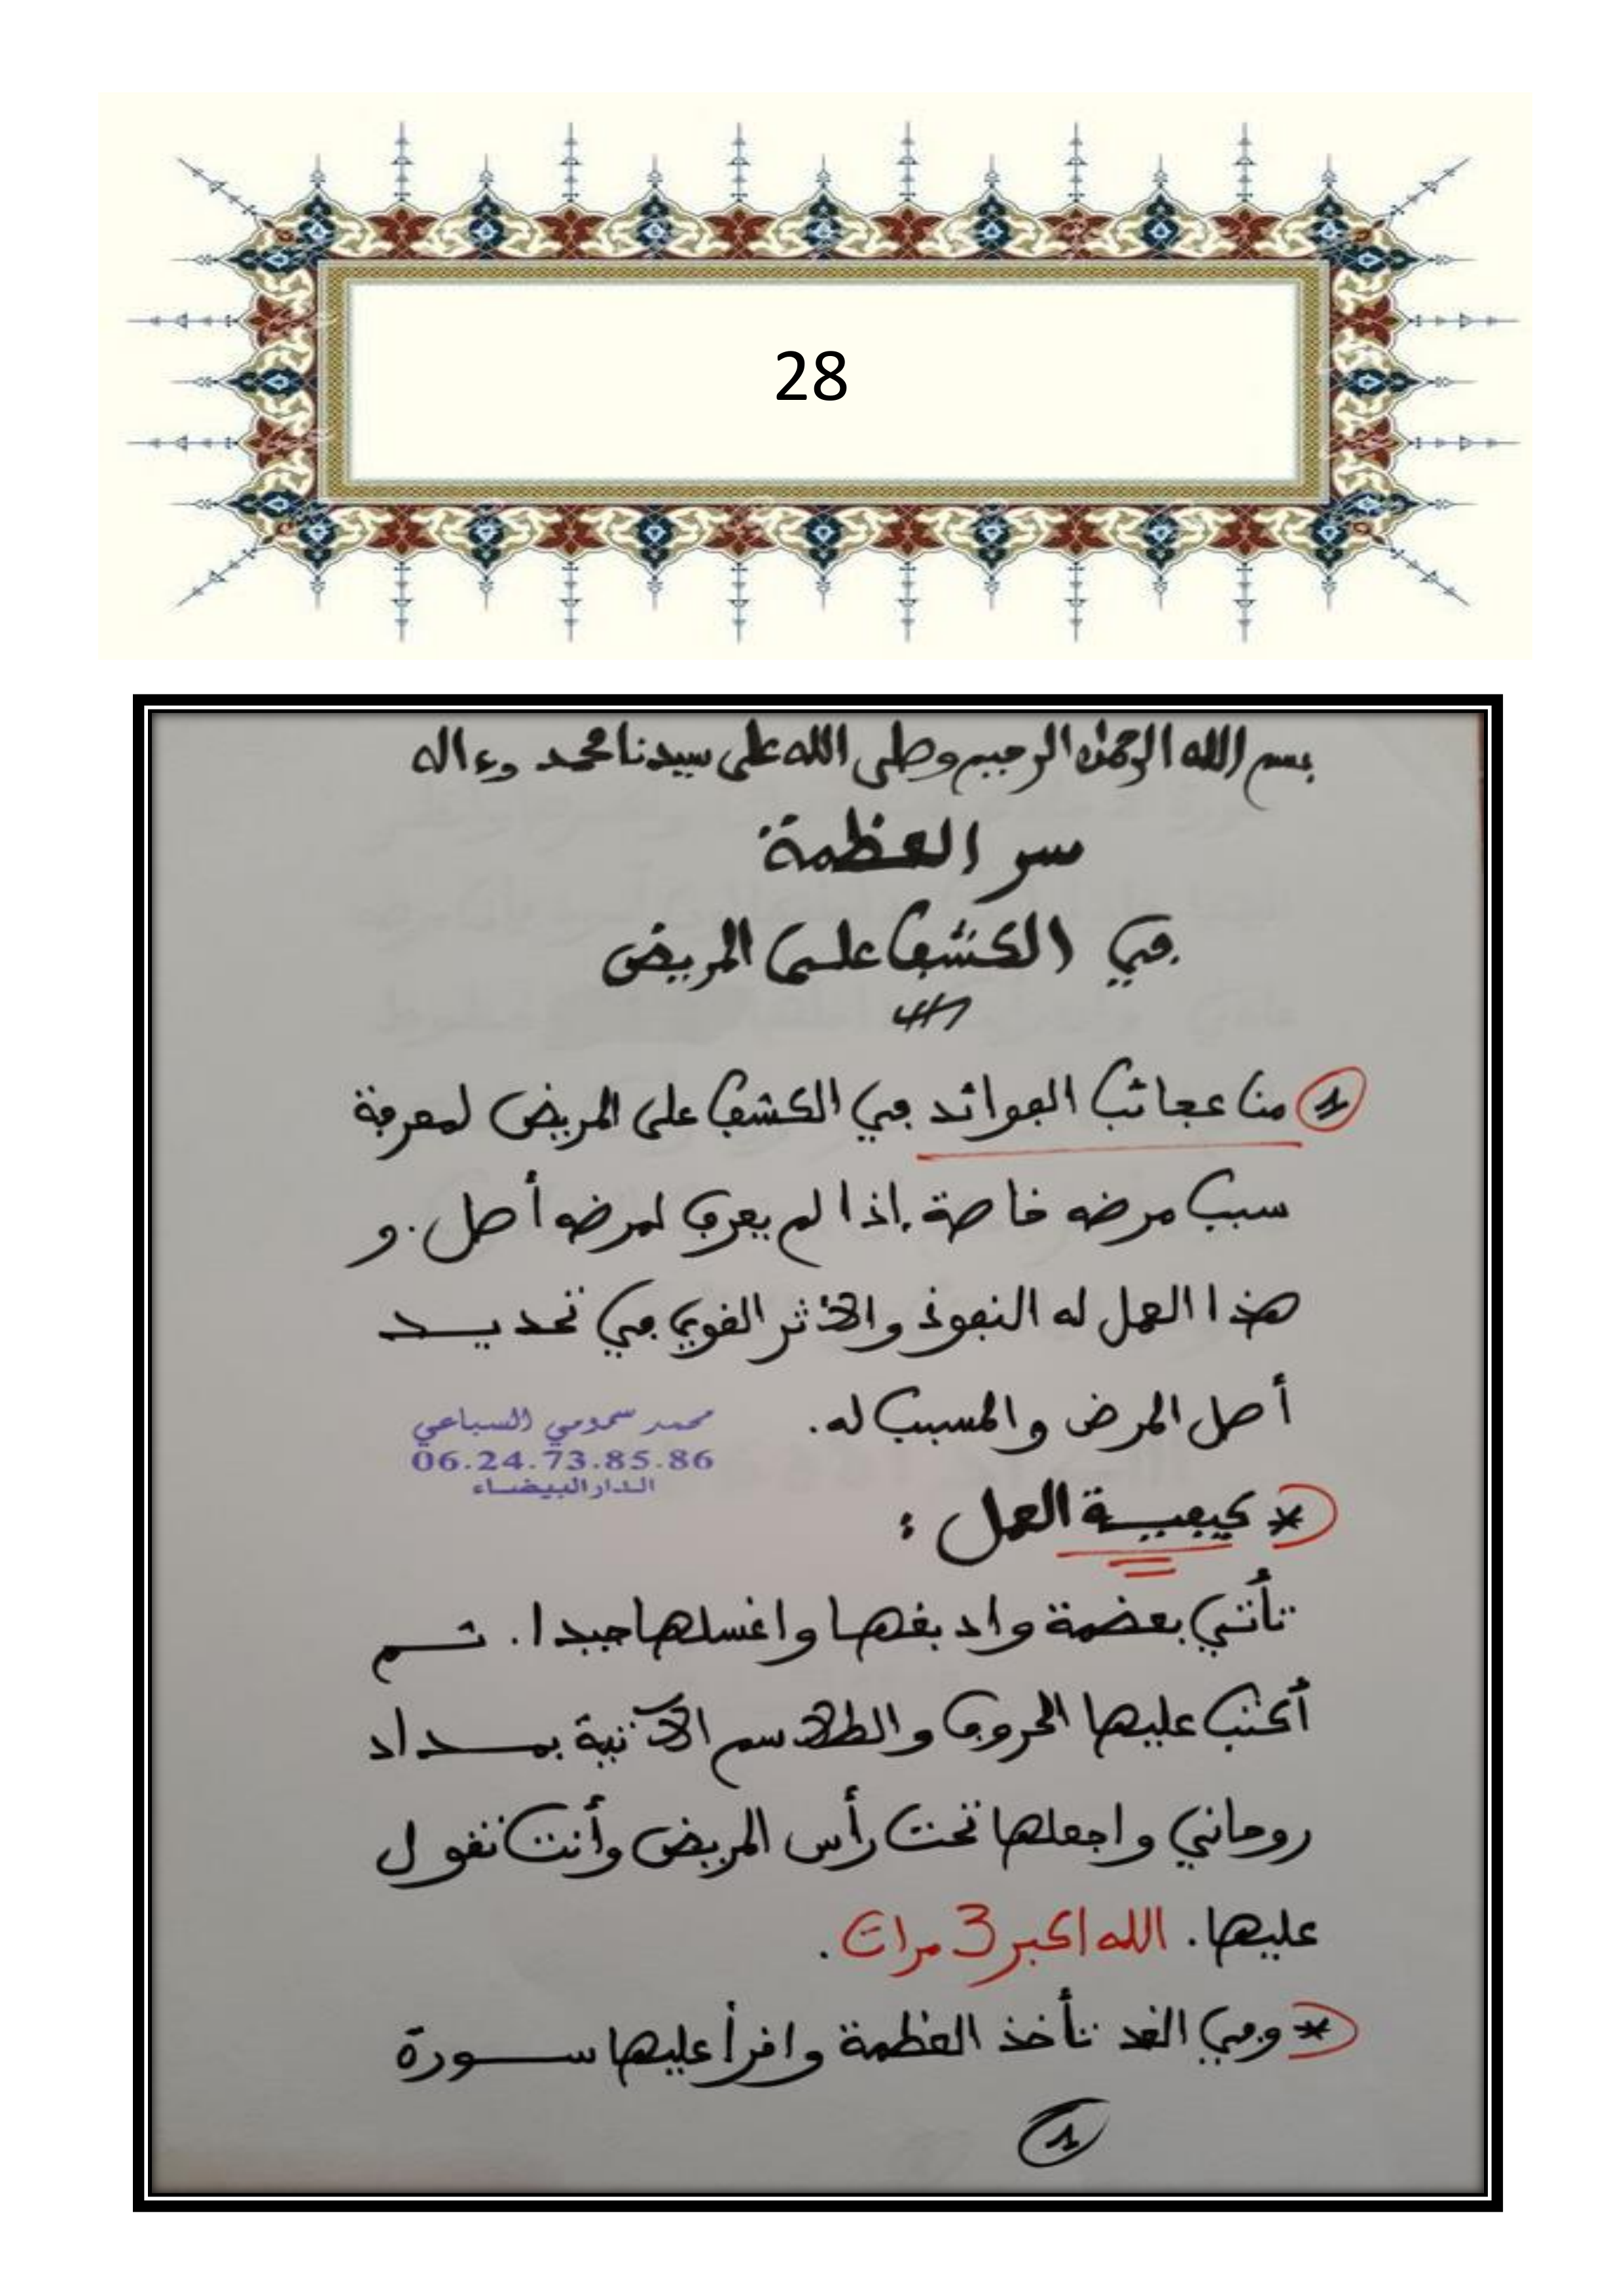 28
بسم الله الرحمن الرحيم وصلى الله على سيدنا محمد وءاله
سر العظمة
في الكشف على المريض
1 من عجائب الفوائد في الكشف على المريض لمعرفة
سبب مرضه خاصة. إذا لم يعرف لمرضه أصل. و
هذا العمل له النفوذ والأثر القوي في تحديد
أصل المرض والمسبب له.
محمد سمومي السباعي
06.24.73.85.86
الدار البيضاء
* كيفية العمل :
تأتي بعضمة وادبغها واغسلها جيدا. ثم
أكتب عليها الحروف والطلاسم الآتية بمداد
روحاني واجعلها تحت رأس المريض وأنت تقول
عليها. الله اكبر 3 مرات.
* وفي الغد تأخذ العظمة واقرأ عليها سورة
1